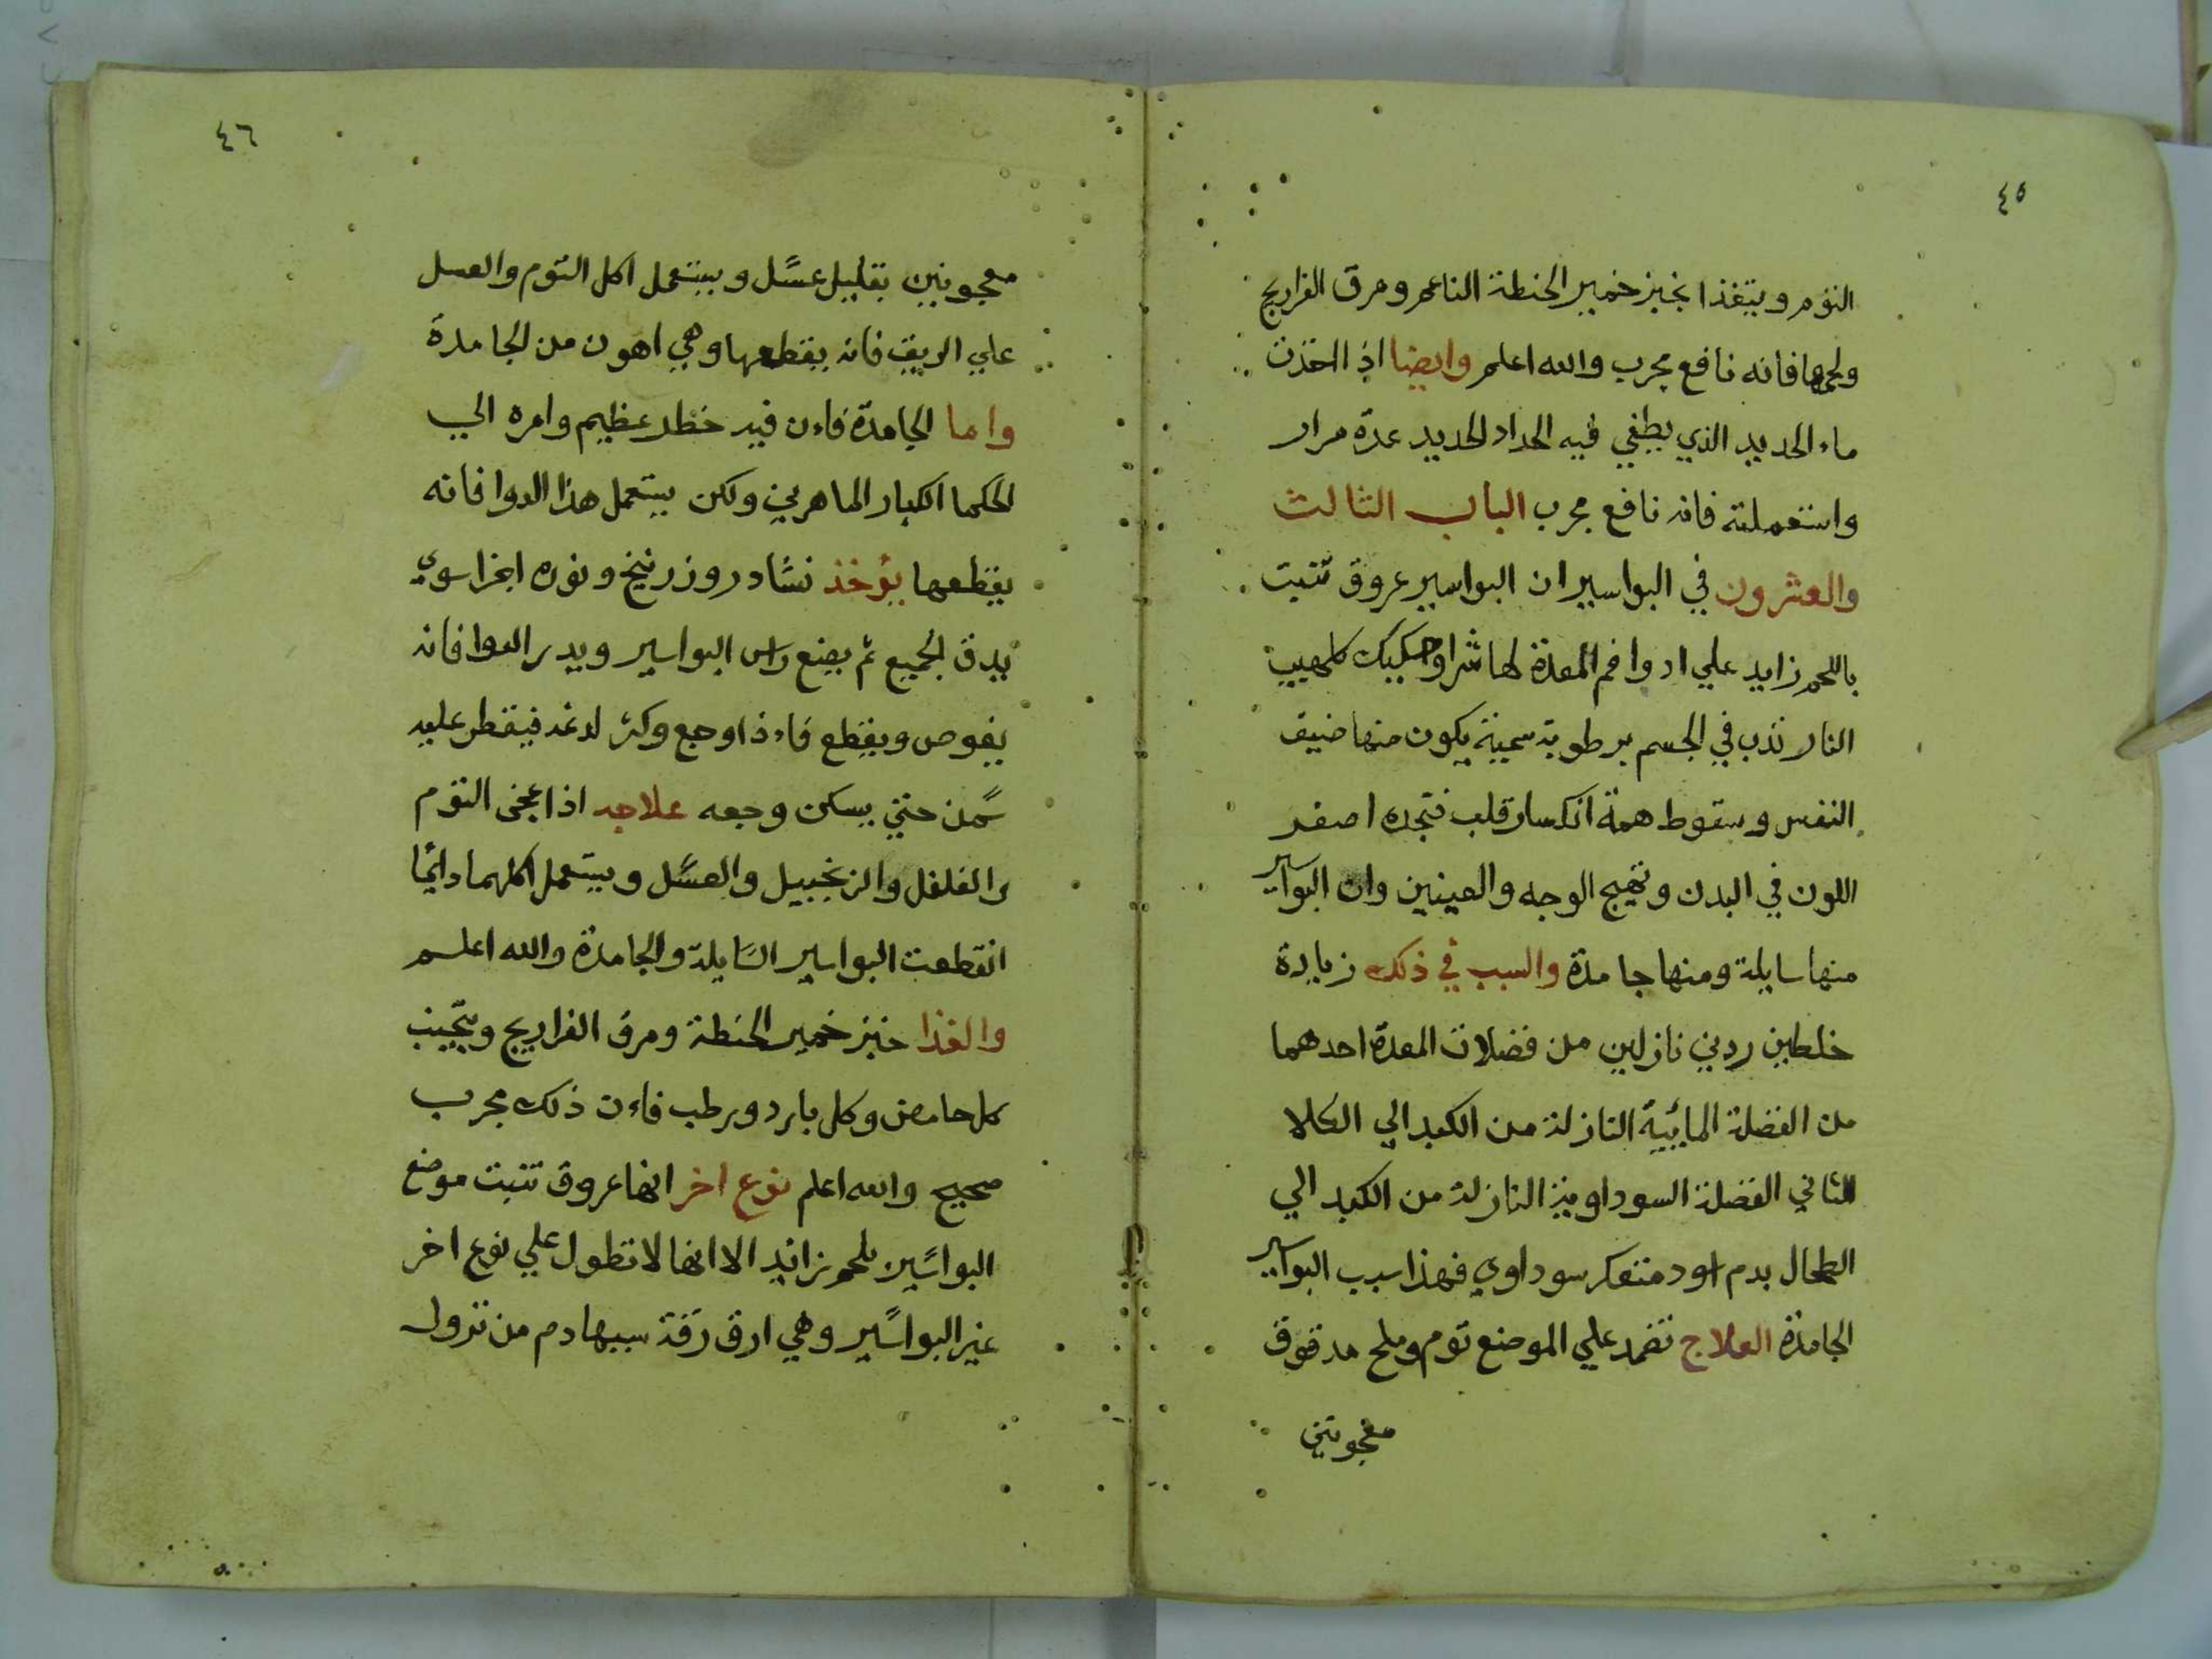 ٤٥
النوم ويتغذا بخبز خمير الحنطة الناعم ومرق الفراريج
ولحمها فانه نافع مجرب والله اعلم وايضا اذ اخذت
ماء الحديد الذي يطفي فيه الحداد الحديد عدة مرار
واستعملته فانه نافع مجرب الباب الثالث
والعشرون في البواسير ان البواسير عروق تنبت
باللحم زايد علي ادوا فم المعدة لها شرا وحسكيك كلهيب
النار تذب في الجسم برطوبة سمينة يكون منها ضيق
النفس وسقوط همة انكسار قلب فتجده اصفر
اللون في البدن وتهيج الوجه والعينين وان البواسير
منها سايلة ومنها جامدة والسبب في ذلك زيادة
خلطين رديي نازلين من فضلات المعدة احدهما
من الفضلة المائية النازلة من الكبد الي الكلا
الثاني الفضلة السوداوية النازلة من الكبد الي
الطحال بدم اسود متعكر سوداوي فهذا سبب البواسير
الجامدة العلاج تضمد علي الموضع توم وملح مدقوق
معجونين
٤٦
معجونين بقليل عسل ويستعمل اكل التوم والعسل
علي الريق فانه يقطعها وهي اهون من الجامدة
واما الجامدة فاءن فيه خطر عظيم وامره الي
الحكما الكبار الماهرين ولكن يستعمل هذا الدوا فانه
يقطعها يؤخذ نشادر وزرنيخ ونوره اجزا سوي
يدق الجميع ثم يضع راس البواسير ويدر الدوا فانه
يغوص ويقطع فاءذا وجع وكثر لدغه فيقطر عليه
سمن حتي يسكن وجعه علاجه اذا عجن التوم
والفلفل والزنجبيل والعسل ويستعمل اكلهما دائما
انقطعت البواسير السايلة والجامدة والله اعلم
والغذا خبز خمير الحنطة ومرق الفراريج ويتجنب
كل حامض وكل بارد ورطب فاءن ذلك مجرب
صحيح والله اعلم نوع اخر انها عروق تنبت موضع
البواسير بلحم زائد الا انها لا تطول علي نوع اخر
غير البواسير وهي ارق رقة سببها دم من نزول